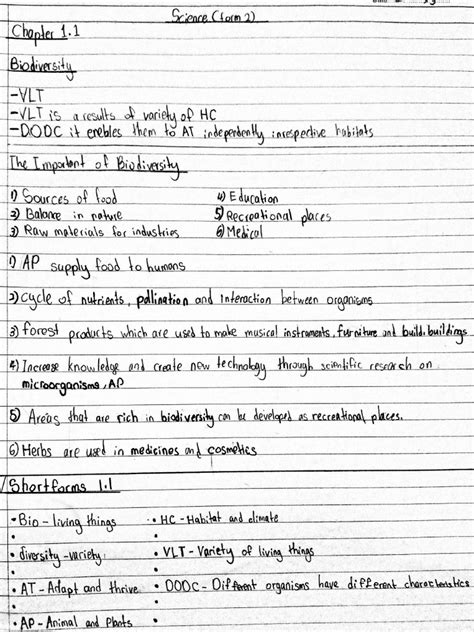 Science (form 2)
Chapter 1.1
Biodiversity
-VLT
-VLT is a results of variety of HC
-DODC it enables them to AT independently inrespective habitats
The Important of Biodiversity
1) Sources of food
4) Education
2) Balance in nature
5) Recreational places
3) Raw materials for industries
6) Medical
1) AP supply food to humans
2) cycle of nutrients, pallination and interaction between organisms
3) forest products which are used to make musical instraments, furniture and build. buildings
4) Increase knowledge and create new technology through scientific research on
microorganisms, AP
5) Areas that are rich in biodiversity can be developed as recreational places.
6) Herbs are used in medicines and cosmetics
Shortforms 1.1
• Bio - living things
• HC - Habitat and climate
• diversity - variety
• VLT - Variety of living things
• AT - Adapt and thrive
• DODC - Different organisms have different characteristics
• AP - Animal and Plants